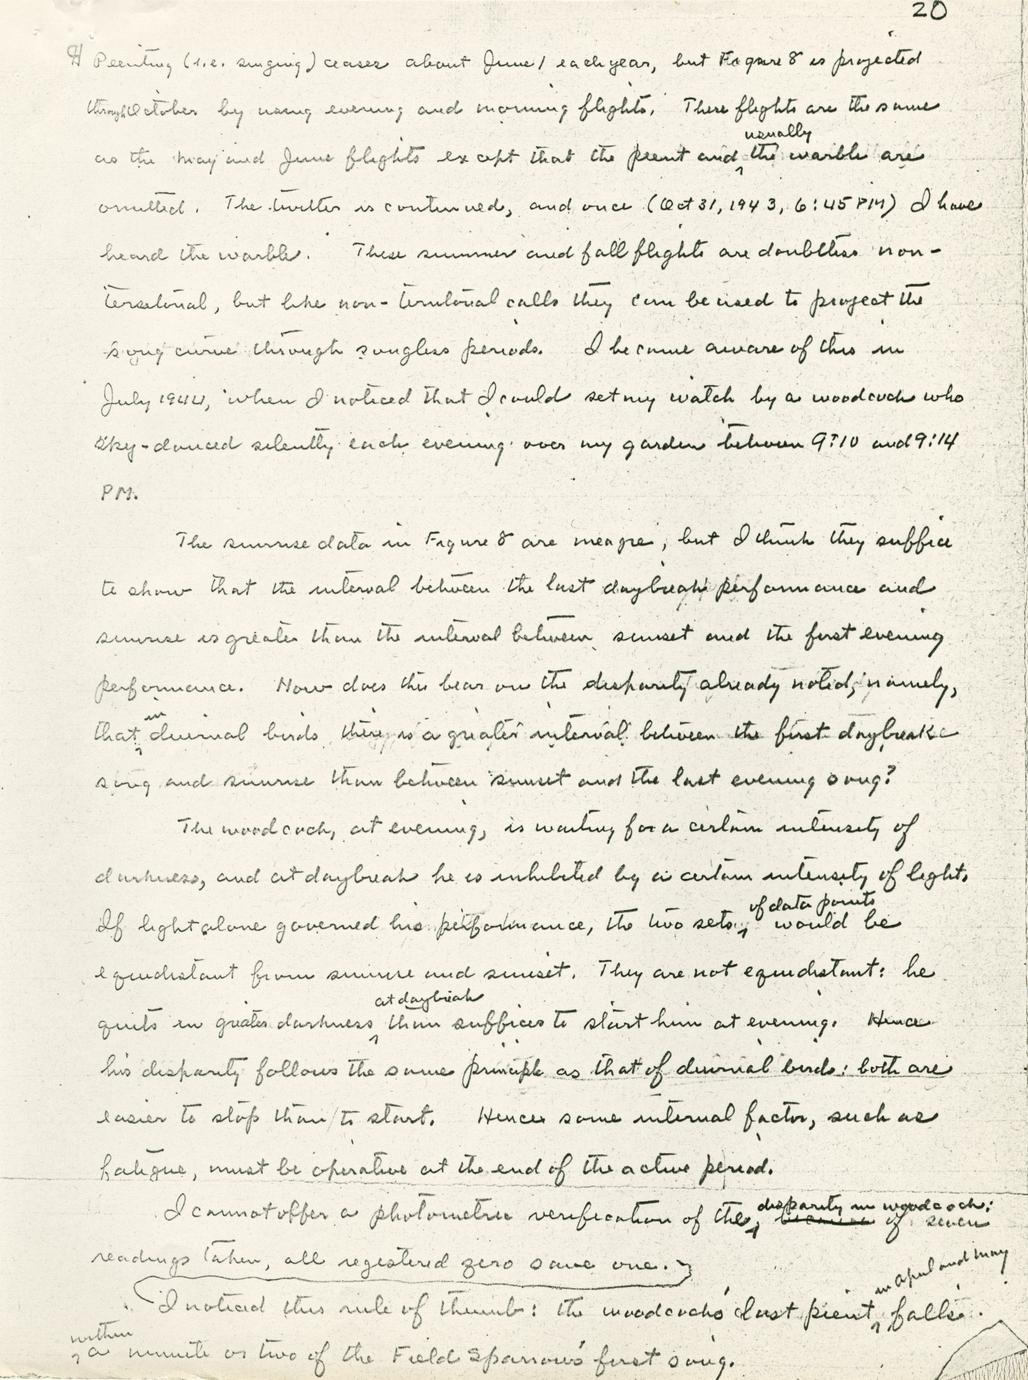 20
¶ Peenting (i.e. singing) ceases about June 1 each year, but Figure 8 is projected
through October by using evening and morning flights. These flights are the same
usually
as the May and June flights except that the peent and the warble are
omitted. The twitter is continued, and once (Oct 31, 1943, 6:45 PM) I have
heard the warble. These summer and fall flights are doubtless non-
territorial, but like non-territorial calls they can be used to project the
song curve through songless periods. I became aware of this in
July 1944, when I noticed that I could set my watch by a woodcock who
sky-danced silently each evening over my garden between 9:10 and 9:14
PM.
The sunrise data in Figure 8 are meagre, but I think they suffice
to show that the interval between the last daybreak performance and
sunrise is greater than the interval between sunset and the first evening
performance. How does this bear on the disparity already noted, namely,
in
that diurnal birds there is a greater interval between the first daybreak
song and sunrise than between sunset and the last evening song?
The woodcock, at evening, is waiting for a certain intensity of
darkness, and at daybreak he is inhibited by a certain intensity of light.
of data points
If light alone governed his performance, the two sets would be
equidistant from sunrise and sunset. They are not equidistant: he
at daybreak
quits in greater darkness than suffices to start him at evening. Hence
his disparity follows the same principle as that of diurnal birds: both are
easier to stop than to start. Hence some internal factor, such as
fatigue, must be operative at the end of the active period.
disparity in woodcock:
I cannot offer a photometric verification of the of seven
readings taken, all registered zero save one.
in April and May
I noticed this rule of thumb: the woodcocks' last peent falls
within
a minute or two of the Field Sparrow's first song.